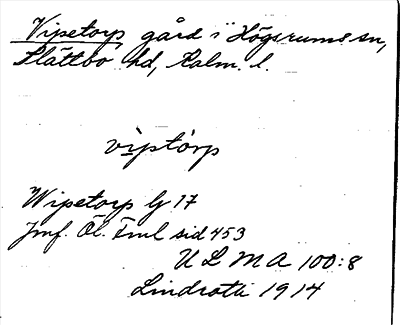 Vipetorp gård i Högsrums sn,
Slättbo hd, Kalm. l.
vìptórp
Wipetorp Lj 17
Jmf. Öl. Fml sid 453
U L M A 100:8
Lindroth 1914